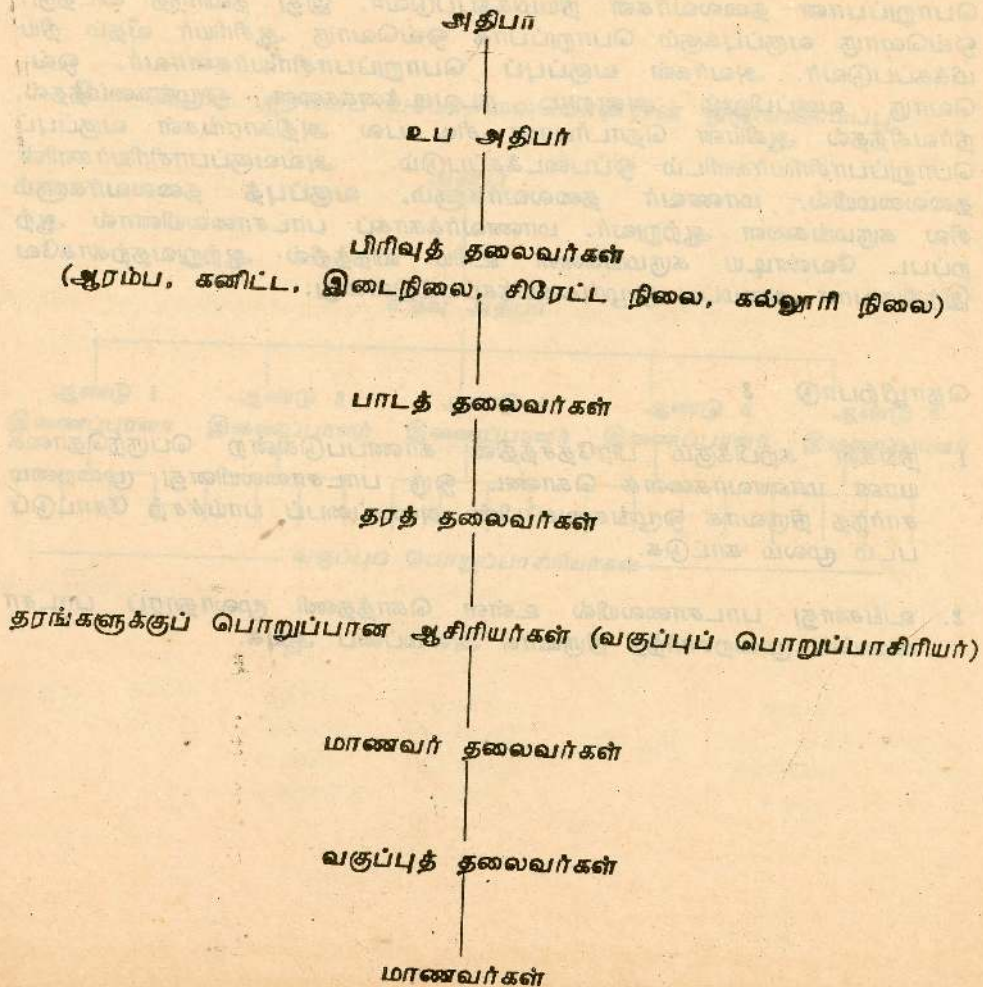 அதிபா
உப அதிபர்
பிரிவுத் தலைவர்கள்
(ஆரம்ப, கனிட்ட, இடைநிலை, சிரேட்ட நிலை, கல்லூரி நிலை)
பாடத் தலைவர்கள்
தரத் தலைவர்கள்
தரங்களுக்குப் பொறுப்பான ஆசிரியர்கள் (வகுப்புப் பொறுப்பாசிரியர்)
மாணவர் தலைவர்கள்
வகுப்புத் தலைவர்கள்
மாணவர்கள்